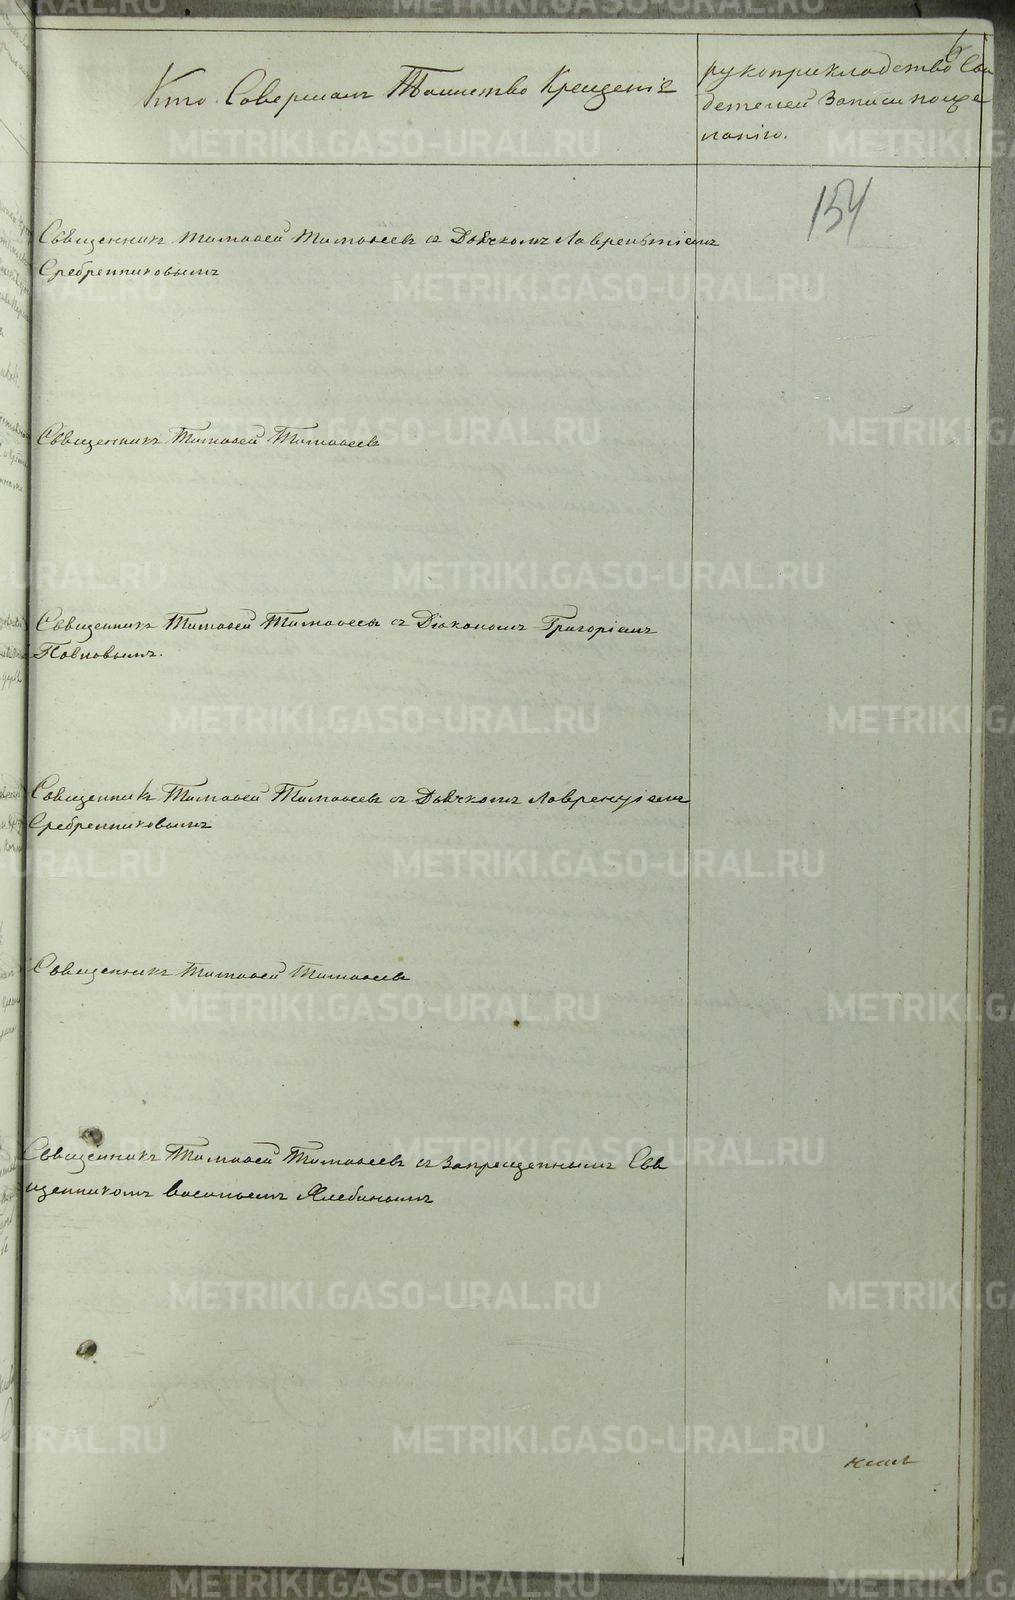 6
Кто Совершалъ Таинство Крещенія
рукоприкладство Сви
детелей Записи по же
ланію.
154
Священникъ Тимофей Тимофеевъ съ Дьячкомъ Лаврентіемъ
Сребренниковымъ
Священникъ Тимофей Тимофеевъ
Священникъ Тимофей Тимофеевъ съ Діакономъ Григоріемъ
Поповымъ.
Священникъ Тимофей Тимофеевъ съ Дьячкомъ Лаврентіемъ
Сребренниковымъ
Священникъ Тимофей Тимофеевъ
Священникъ Тимофей Тимофеевъ съ Запрещеннымъ Свя
щенникомъ Васильемъ
METRIKI.GASO-URAL.RU